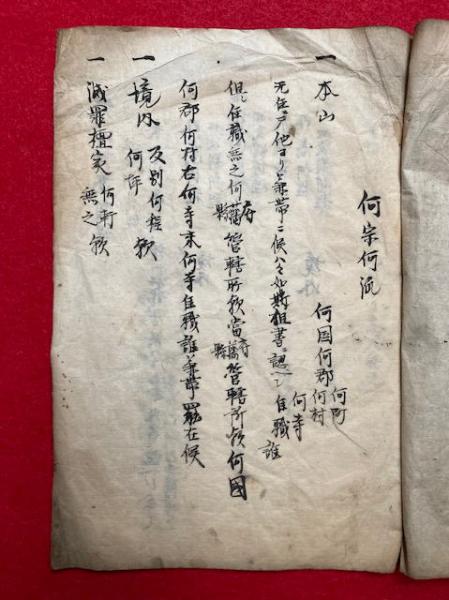 何宗何流
一 本山 何国何郡何村何町
何寺
住職 誰
無住ニ而他ヨリ兼帯ニ候ハヽ如斯粗書ニ認ヘシ
但シ住職無之何府藩縣管轄所歟當府藩縣管轄所歟何國
何郡何村右何寺末何寺住職誰兼帯罷在候
一 境内 反別何程歟
何坪
一 滅罪檀家 何軒
無之歟